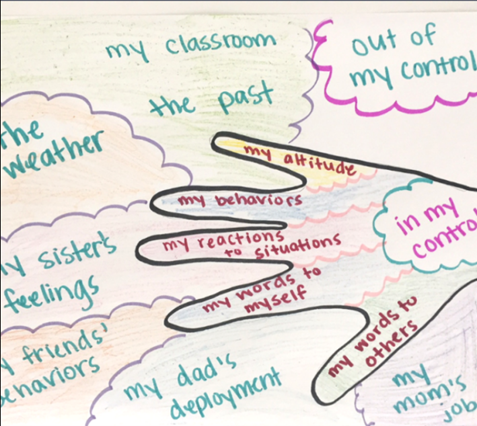 my classroom
out of
my control
the past
the
weather
my attitude
my behaviors
my reactions
to situations
in my
control
my sister's
feelings
my words to
myself
my friends'
behaviors
my words to
others
my dad's
deployment
my
mom's
job